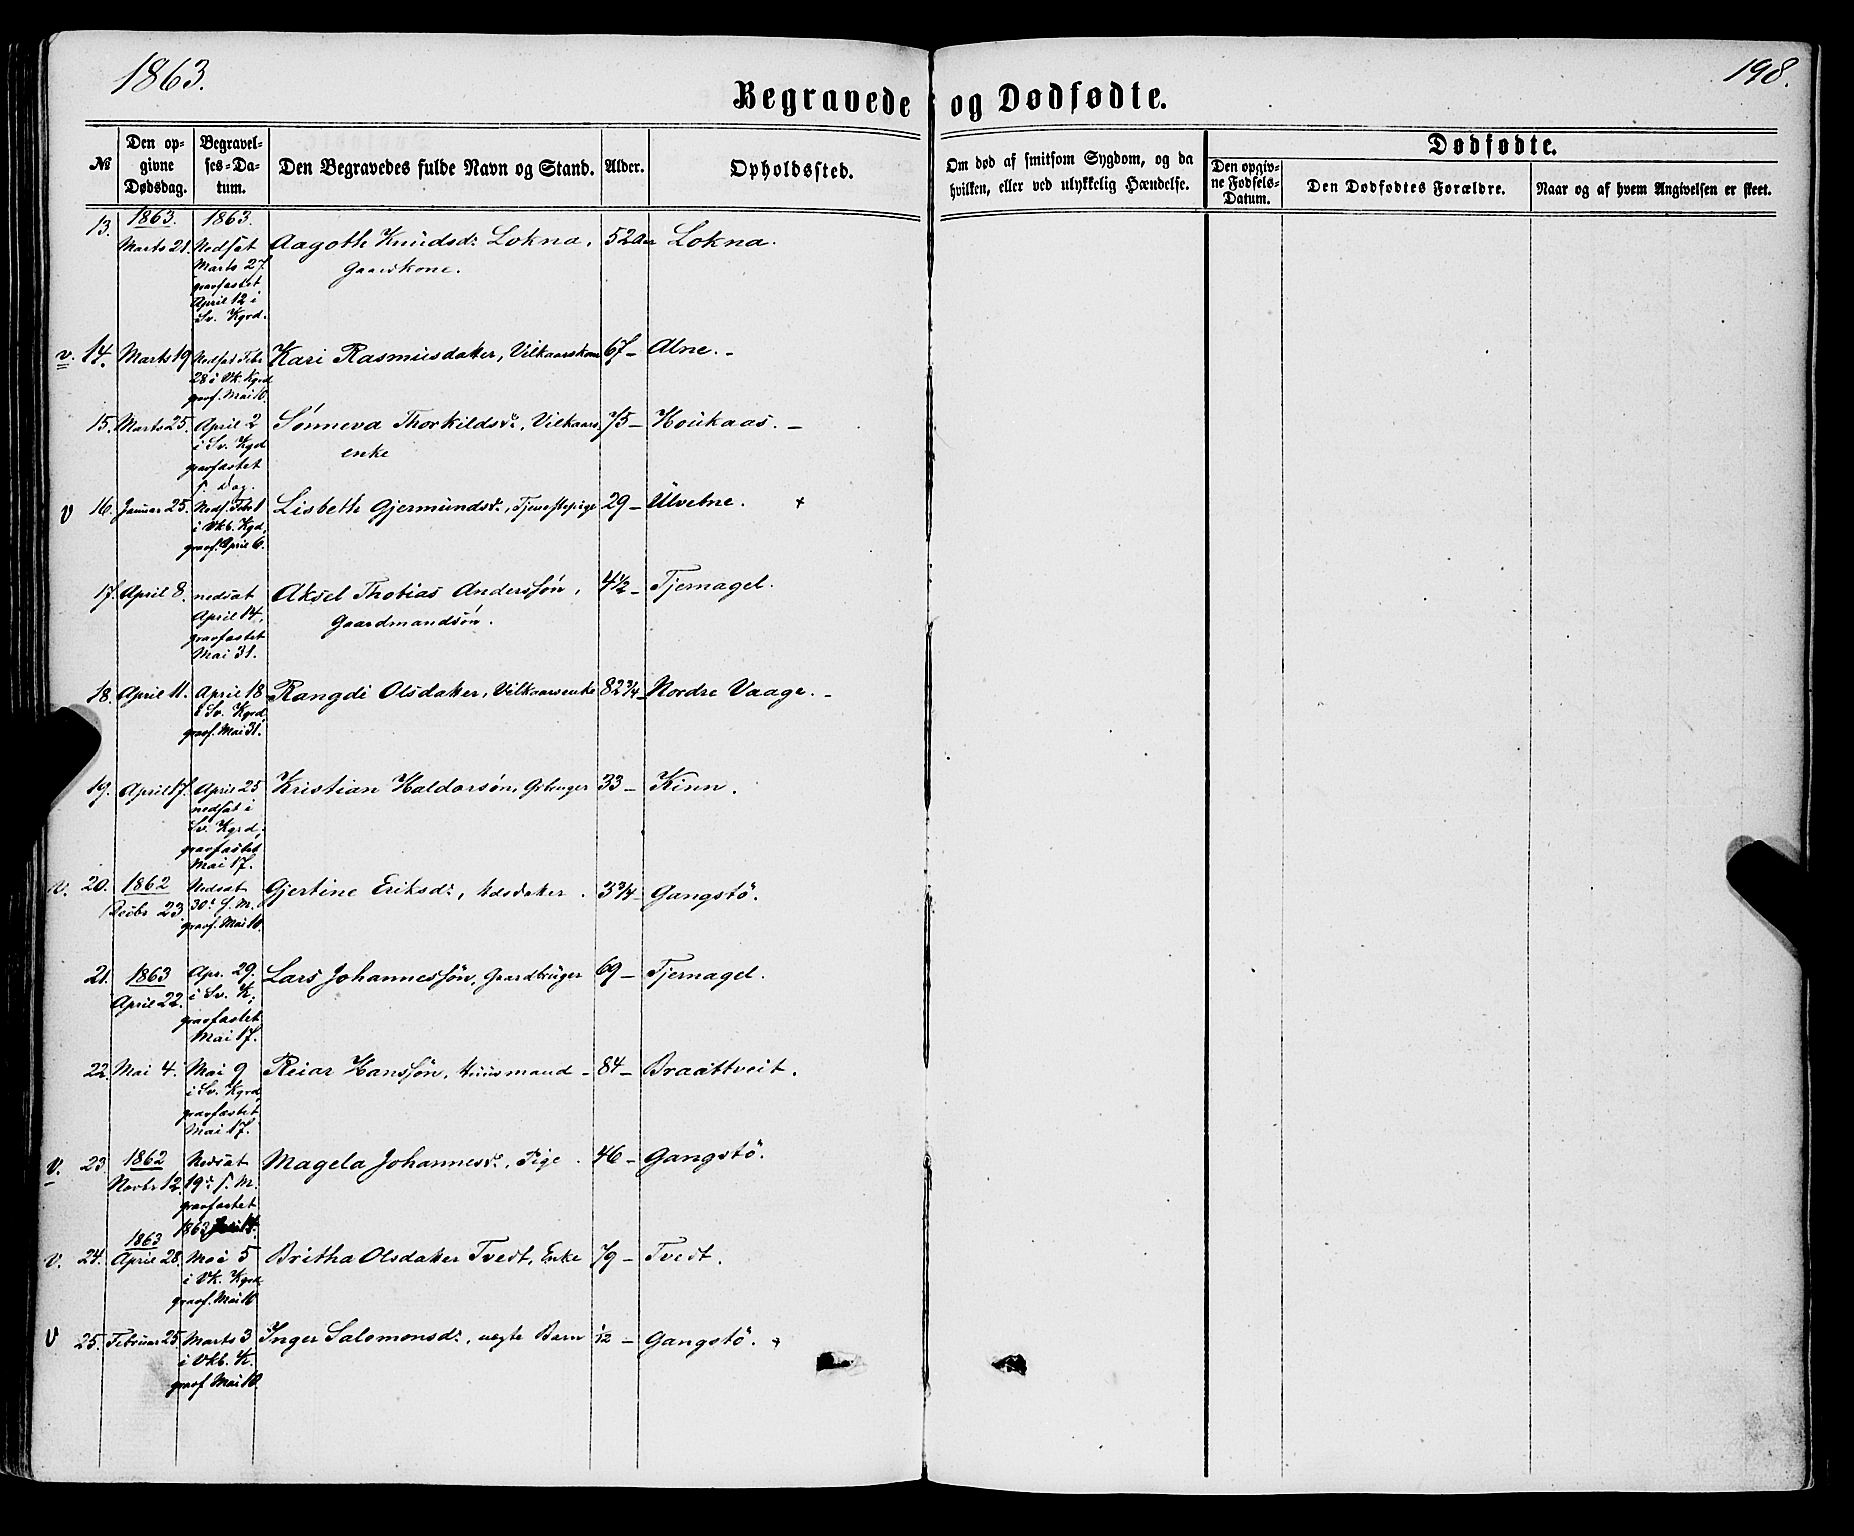 1863.
198.
Begravede og Dødfødte.
№
Den op-
givne
Dødsdag.
Begravel-
ses-Da-
tum.
Den Begravedes fulde Navn og Stand.
Alder.
Opholdssted.
Om død af smitsom Sygdom, og da
hvilken, eller ved ulykkelig Hændelse.
Dødfødte.
Den opgiv-
ne Fødsels-
Datum.
Den Dødfødtes Forældre.
Naar og af hvem Angivelsen er skeet.
1863. 1863.
13. Marts 21. Nedsat Aagoth Knudsd. Lokna, 52 Aar Lokna.
Marts 27. Gaardkone.
gravfæstet
April 12 i
Sv. Kgrd.
v. 14. Marts 19 Nedsat Febr Kari Rasmusdatter, Vilkaarskone 67 - Alne. -
28 i Vk. Kgrd
gravf. Mai 10.
15. Marts 25. April 2 Sönneva Thorkildsd., Vilkaars 75 - Houkaas. -
i Sv. Kgd enke
gravfastet
s. Dag.
V 16. Januar 25. Neds. Febr 1 Lisbeth Gjermundsd., Tjenestepige 29 - Ulvetne. +
i Vkb. Kgd,
gravf. April 6.
17. April 8. nedsat Aksel Thobias Anderssön, 4½ - Tjernagel.
April 14, Gaardmandsön.
gravfastet
Mai 31.
18. April 11. April 18 Rangdi Olsdatter, Vilkaarsenke 82¾ - Nordre Vaage. -
i Sv. Kgrd,
gravf. Mai 31.
19. April 17. April 25 Kristian Haldorsön, Gbruger 33 - Kinn.
nedsat i
Sv. Kgrd,
gravfastet
Mai 17.
v. 20. 1862 Nedsat Gjertine Eriksd., 3¾ - Gangstö.
Decbr 23. 30. s. M.
gravf. Mai 10.
21. 1863 Apr. 29. Lars Johannessön, Gaardbruger 69 - Tjernagel.
April 22. i Sv. K,
gravfastet
Mai 17.
22. Mai 4. Mai 9 Reiar Hanssön, Huusmand - 84 - Braattveit.
i Sv. Kgrd,
gravfastet
Mai 17.
v. 23. 1862 Nedsat Magela Johannesd., Pige. 46 - Gangstö.
Novbr 12. 19. s. M.
gravfastet
1863
1863
v. 24. April 28. Mai 5 Britha Olsdatter Tvedt, Enke 79 - Tvedt.
i Vk. Kgrd,
gravf. Mai 10
V 25. Februar 25. Marts 3 Inger Salomonsd., uegte Barn ½ - Gangstö. +
i Vkb. K.
gravf Mai 10.